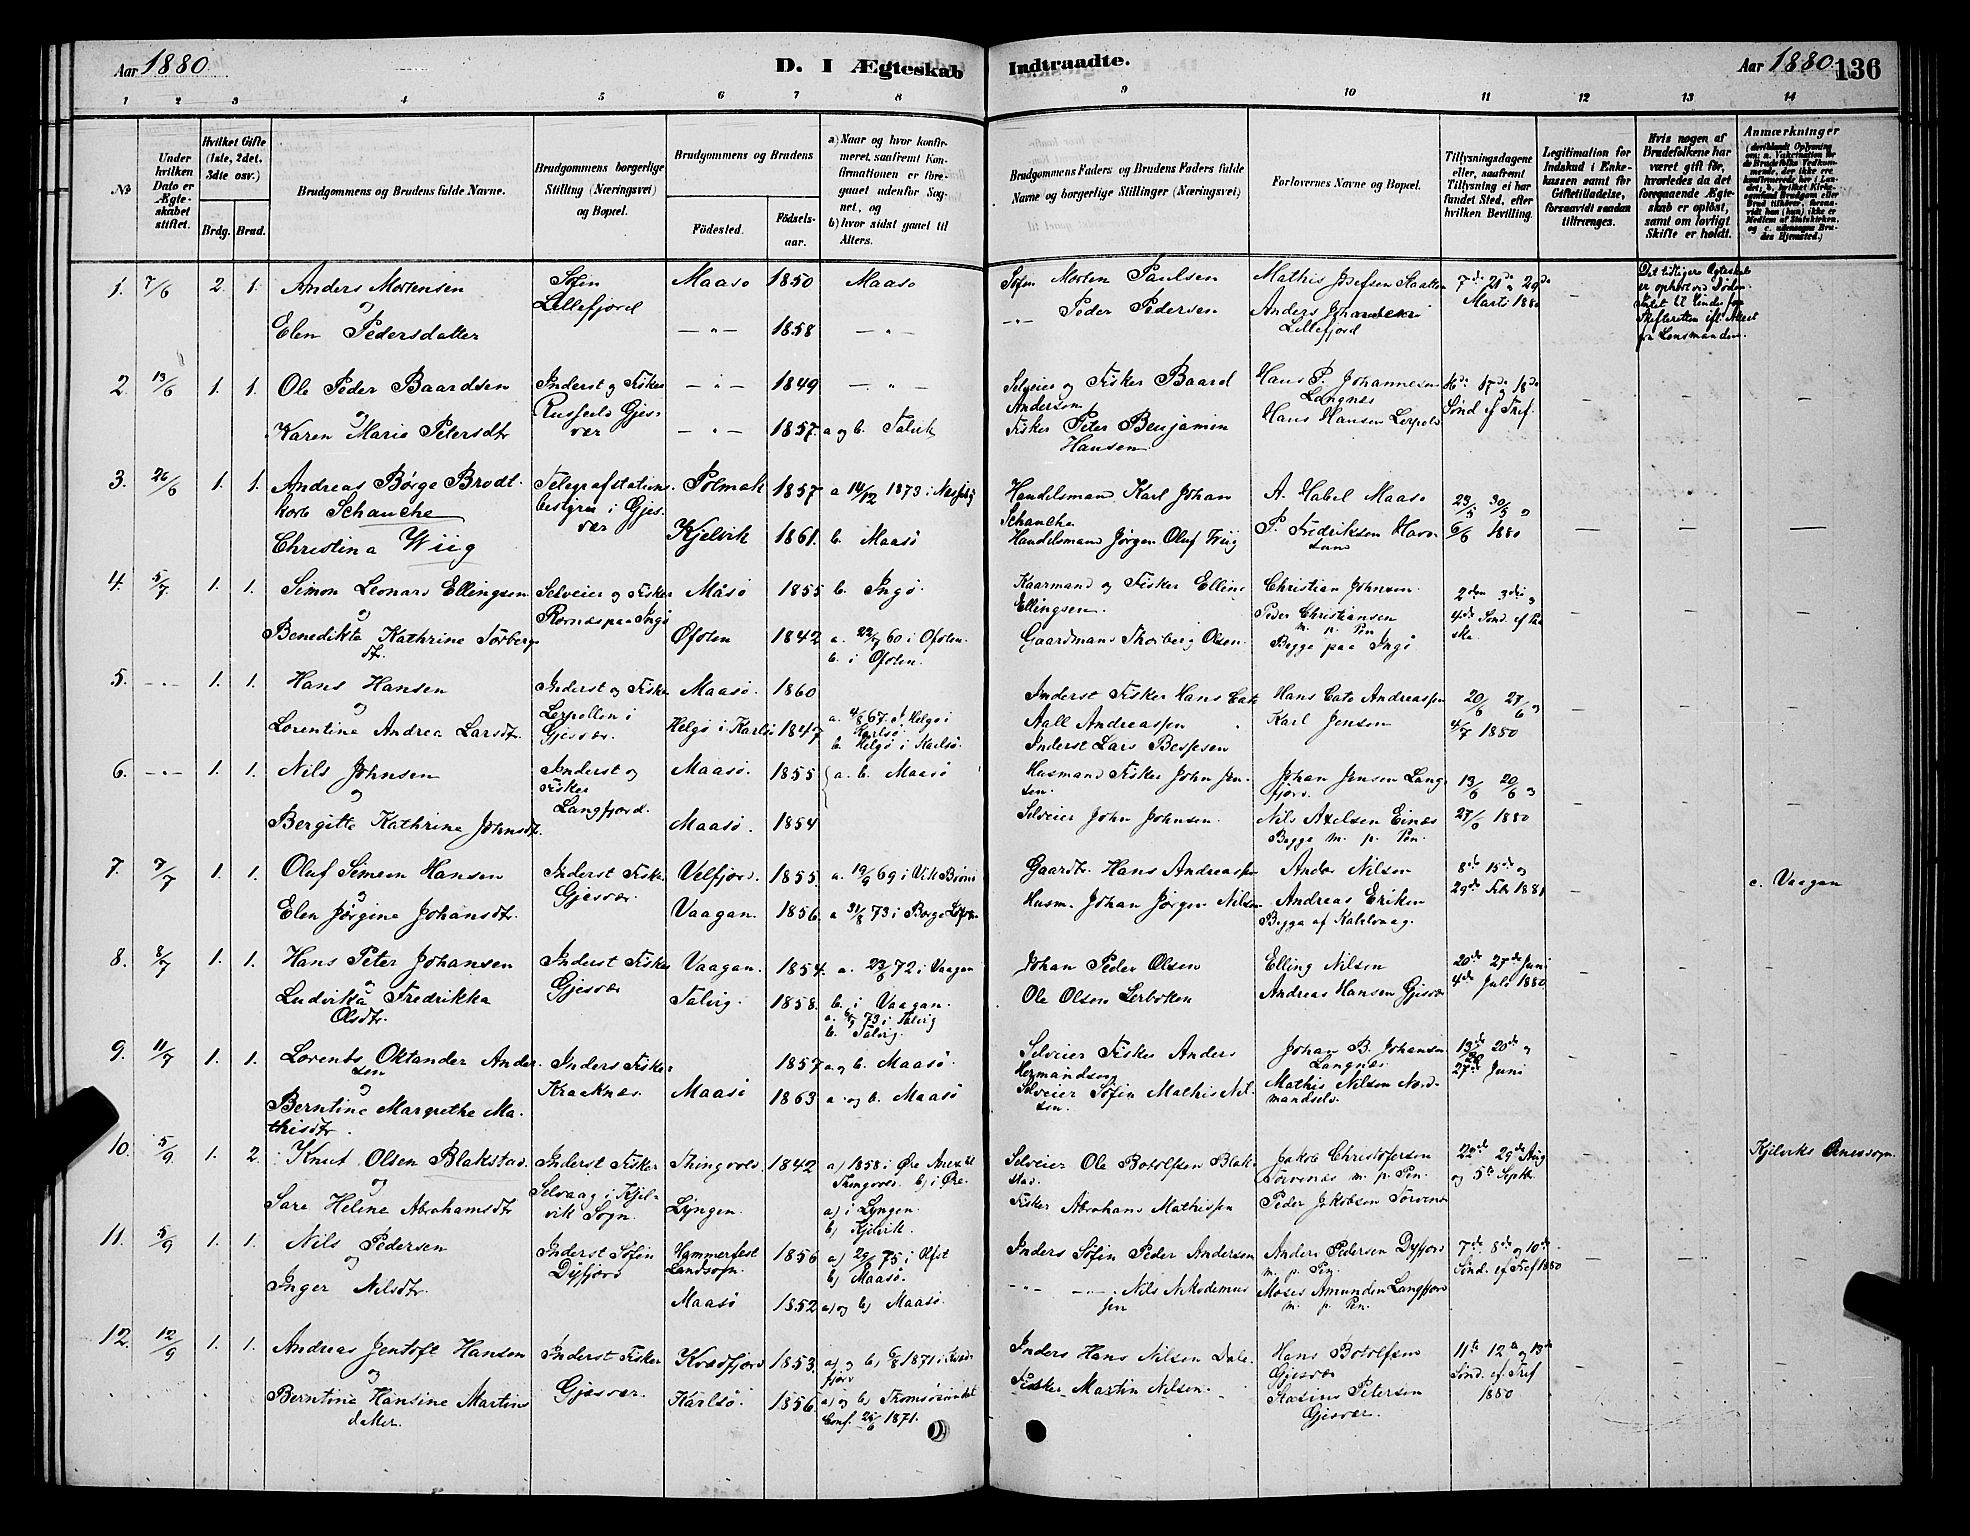 Aar 1880
D. I Ægteskab Indtraadte.
Aar 1880
136
1 2 3 4 5 6 7 8 9 10 11 12 13 14
№
Under hvilken Dato er Ægteskabet stiftet.
Hvilket Gifte (1ste, 2det, 3die osv.)
Brdg. Brud.
Brudgommens og Brudens fulde Navne.
Brudgommens borgerlige Stilling (Næringsvei) og Bopæl.
Brudgommens og Brudens
Födested.
Födsels-aar.
a) Naar og hvor konfirmeret, saafremt Konfirmationen er foregaaet udenfor Sognet, og
b) hvor sidst gaaet til Alters.
Brudgommens Faders og Brudens Faders fulde Navne og borgerlige Stillinger (Næringsvei)
Forlovernes Navne og Bopæl.
Tillysningsdagene eller, saafremt Tillysning ei har fundet Sted, efter hvilken Bevilling.
Legitimation for Indskud i Enkekassen samt for Giftetilladelse, forsaavidt saadan tiltrænges.
Hvis nogen af Brudefolkene har været gift før, hvorledes da det foregaaende Ægteskab er opløst, samt om lovligt Skifte er holdt.
Anmærkninger
1. 7/6 2. 1. Anders Mortensen
og
Elen Pedersdatter
Søfin
Lillefjord
Maasø 1850 Maasø
— " — 1858 — " —
Søfin Morten Paulsen
— " — Peder Pedersen
Mathis Josefsen
Anders Johannesen
Lillefjord
7de 21de 29de
Marts 1880
Det tidligere Ægteskab
er ophævet ved Døden
fra Lensmanden.
2. 13/6 1. 1. Ole Peder Baardsen
og
Karen Maria Petersdtr
Inderst og Fisker
Gjesvær
— " — 1849 — " —
— " — 1857. a og b. Talvik
Selveier og Fisker Baard
Andersen
Fisker Peter Benjamin
Hansen
Hans P. Johannesen
Langnæs
Hans Hansen
16de 17de 18de
Sønd ef Tref.
3. 26/6 1. 1. Andreas Børge Brodtkorb Schanche
Christina Wiig
Telegrafstationsbestyrer i Gjesvær
Polmak 1857 a 14/12 1873 i Næsseby
Kjelvik 1861. b. Maasø
Handelsmand Karl Johan
Schanche
Handelsmand Jørgen Oluf Wiig
A. Habel Maasø
P. Fredriksen Havøsund
23/5 30/5 og
6/6 1880
4. 5/7 1. 1. Simon Leonard Ellingsen
og
Benedikta Kathrine Torbergsdtr.
Selveier og Fisker
paa Ingø
Måsø 1855 b. Ingø
Ofoten 1842 a. 22/7 60 i Ofoten.
b. i Ofoten.
Kaarmand og Fisker Elling
Ellingsen.
Gaardmand Thorberg Olsen
Christian Johnsen
Peder Christiansen
m. p. Pen
Begge paa Ingø
2den 3die og
4de Sønd. ef Paaske
5. — " — 1. 1. Hans Hansen
og
Lorentine Andrea Larsdtr
Inderst og Fisker
Lerpollen i
Gjesvær.
Maasø. 1860
Helgø i Karlsø 1847 a. 4/8 67. i Helgø i
Karlsø
b. Helgø i Karlsø.
Inderst Fisker Hans Cato
Aall Andreassen
Inderst Lars Bespesen
Hans Cato Andreassen
Karl Jensen
20/6 27/6 og
4/7 1880
6. — " — 1. 1. Nils Johnsen
og
Bergitte Kathrine Johnsdtr.
Inderst og
Fisker
Langfjord.
Maasø. 1855 a. b. Maasø
Maasø. 1854
Husmand Fisker John Jensen.
Selveier John Johnsen.
Johan Jensen Langfjord.
Nils Axelsen Einæs
Begge m. p. Pen.
13/6 20/6 og
27/6 1880
7. 7/7 1. 1. Oluf Simeon Hansen
og
Elen Jørgine Johansdtr.
Inderst Fisker
Gjesvær.
Velfjord. 1855. a. 19/9 69 i Vik
Vaagan. 1856. a 31/8 73 i Borge Lofoten
Gaardbr. Hans Andreassen
Husm. Johan Jørgen Nilsen
Anders Nilsen
Andreas Eriksen
Begge af
8de 15de og
29de Febr 1881
c. Vaagan
8. 8/7 1. 1. Hans Peter Johansen
og
Ludvikka Fredrikka
Olsdtr.
Inderst Fisker
Gjesvær
Vaagan. 1854. a. 22/9 72 i Vaagan
Talvig. 1858. b. i Vaagan.
a. 73 i Talvig
b. Talvig.
Johan Peder Olsen
Ole Olsen Lerbøken
Elling Nilsen
Andreas Hansen Gjesvær
20de 27de Juni
4de Juli 1880
9. 11/7 1. 1. Lorents Oktander Andersen
og
Berntine Margrethe Mathisdtr.
Inders Fisker
Kraaknæs.
1857 a og b. Maasø.
Maasø 1863 a. og b. Maasø
Selveier Fisker Anders
Hermandsen
Selveier Søfin Mathis Nilsen.
Johan B. Johansen
Langnæs.
Mathis Nilsen
13de 20de og
27de Juni
10. 5/9 1. 2. Knut Olsen Blakstad.
og
Sara Helene Abrahamsdtr
Inderst Fisker
Selvaag i Kjelvik Sogn.
Thingvold 1842 a) 1858 i Øre Anex til
Thingvold. b) i Øre.
Lyngen. a) i Lyngen
b) Kjelvik.
Selveier Ole Botolfsen Blakstad.
Fisker Abraham Mathissen
Jakob Christofersen
Torvenæs m. p. Pen
Peder Jakobsen Torvenæs
22de 29de Aug
og 5te Septbr.
Kjelviks Anexsogn
11. 5/9 1. 1. Nils Pedersen
og
Inger Nilsdtr.
Inderst Søfin
Dyfjord
Hammerfest
Landsogn. 1856 a) 75 i
b) Maasø.
Maasø 1852 a) og b) Maasø.
Inders Søfin Peder Andersen
— " — Nils Nikodemussen
Anders Pedersen Dyfjord
m. p. Pen.
Moses Amundsen Langfjord
m. p. Pen.
7de. 8de og 10de
Sønd. ef Tref 1880
12. 12/9 1. 1. Andreas Jentoft Hansen
og
Berntine Hansine Martinsdatter
Inderst Fisker
Gjesvær.
Kvædfjord 1853. a) og b) 1871 i Kvædfjord
Karlsø. 1856. a) og b) Tromsøsundet
Conf. 25/6 1871.
Inders Hans Nilsen Dale
Fisker Martin Nilsen.
Hans Botolfsen
Gjesvær
Stasius Petersen
Gjesvær.
11te 12te og 13de
Sønd. ef. Tref
1880